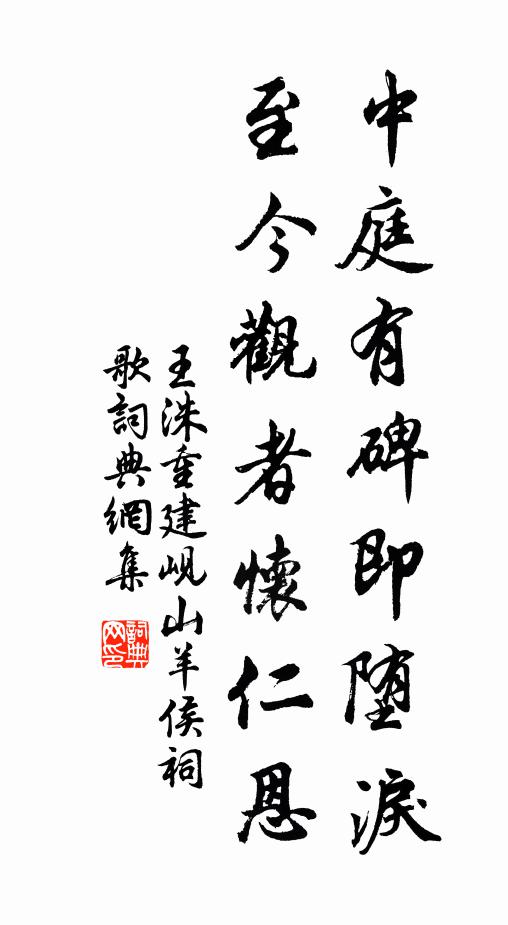 中庭有碑即堕淚
至今觀者懷仁恩
王洙重建峴山羊侯祠
歌詞典網集
詞典网印